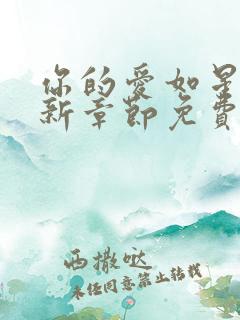 你的愛如星
新章節免費
西撒哒
未经同意禁止转载